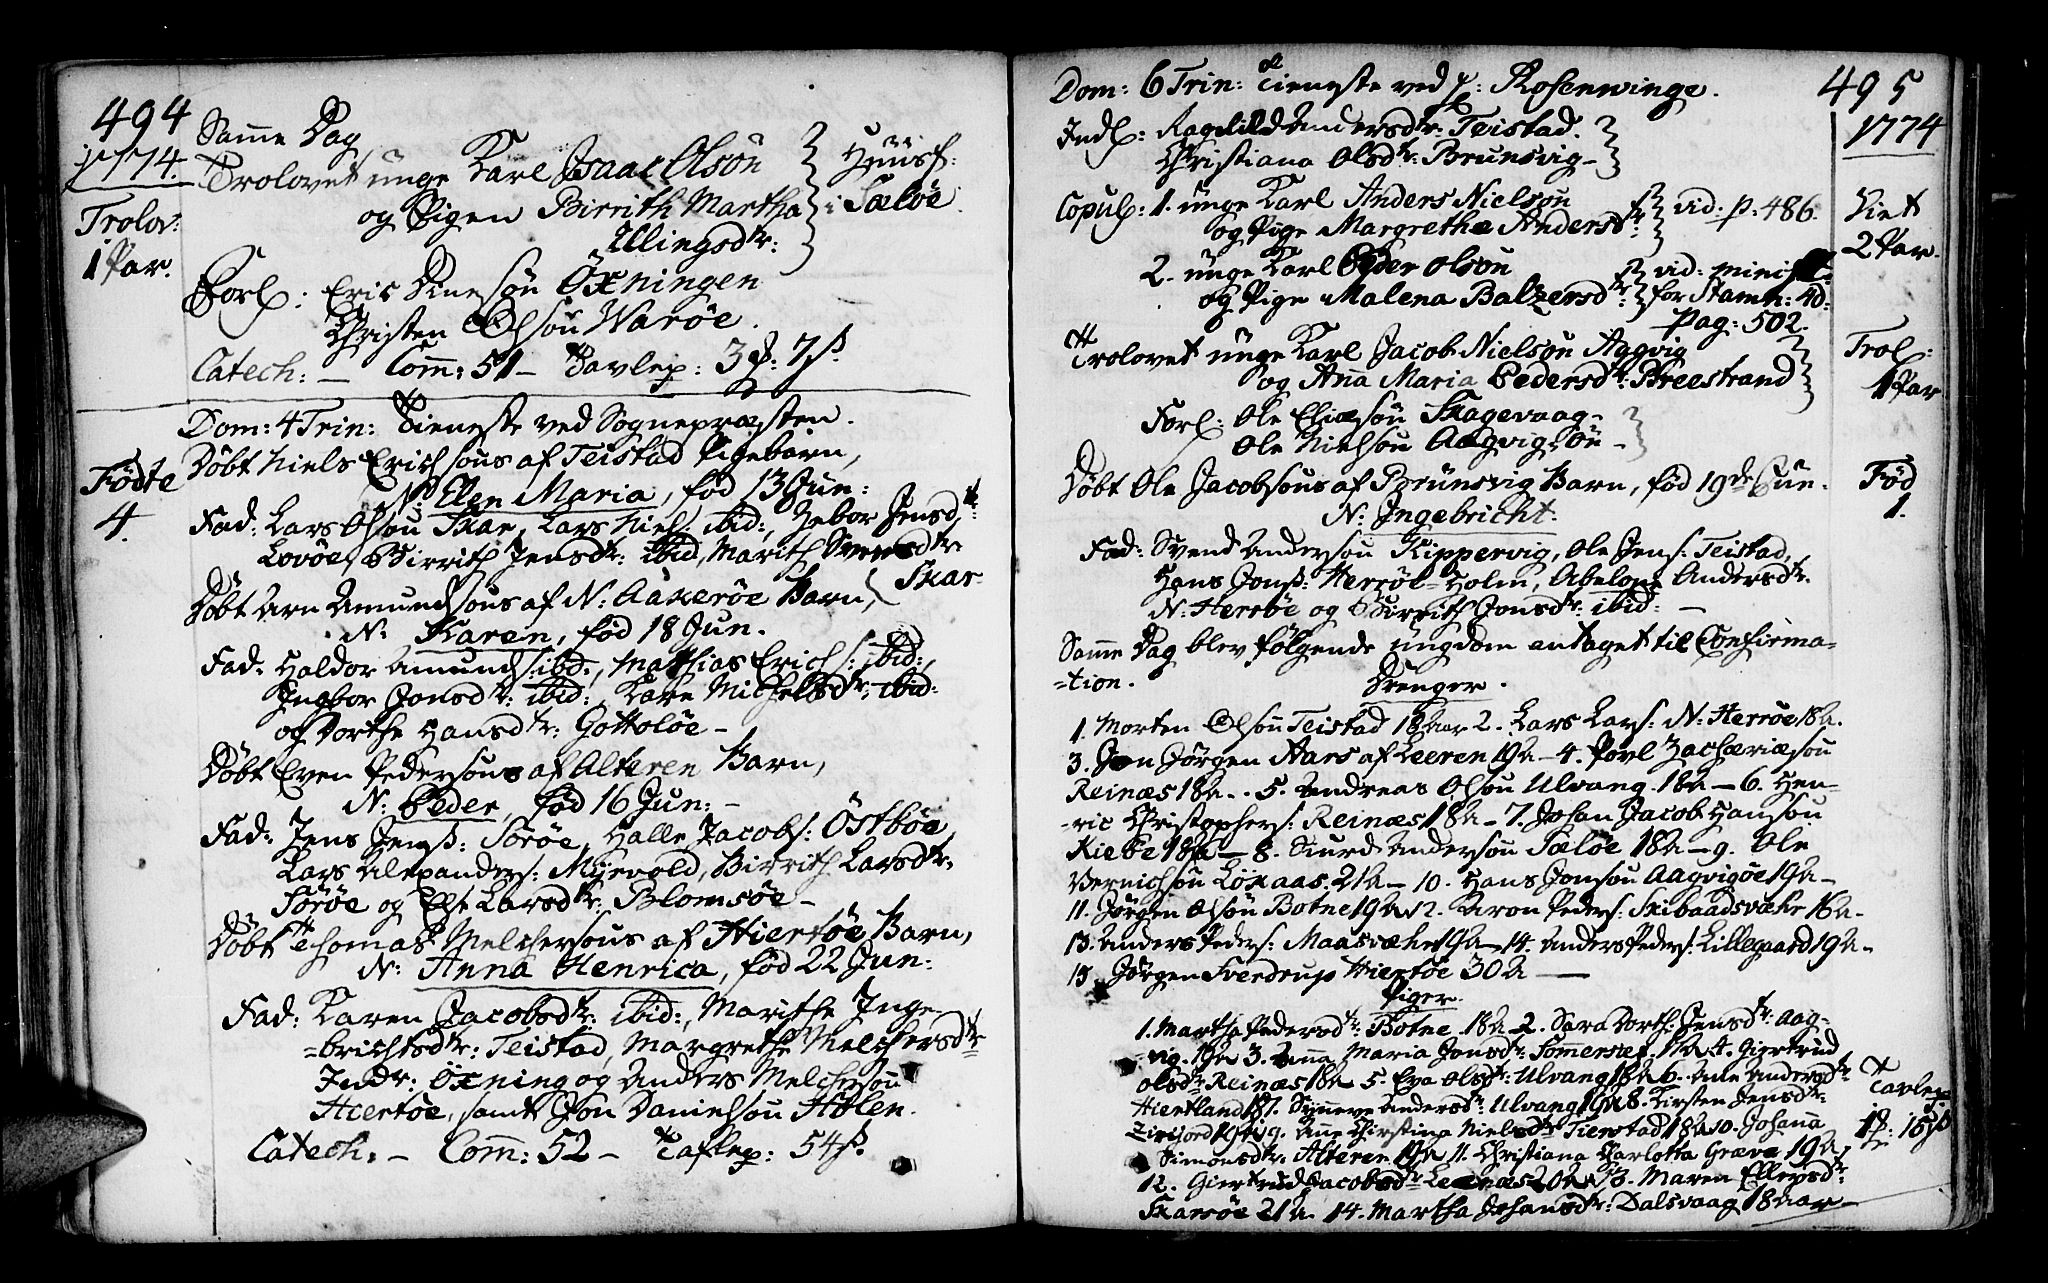 494
1774.
Trolov:
1 Par.
Samme Dag
Trolovet unge Karl Isaac Olsøn
og Pigen Birrith Martha
Ellingsdtr:
Huusf:
i Sæløe.
Forl: Eric Dinesøn Öxningen
Christen Olsøn Warøe.
Catech: — Com̄: 51 — Tavlep: 3 : 7 ß
Dom: 4 Trin: Tieneste ved Sognepræsten.
Fødte
4.
Døbt Niels Erichsøns af Teistad Pigebarn,
N: Elen Maria, fød 13 Jun:
Fad: Lars Olsøn Skar, Lars Niels: ibid:, Zebor Jensdtr:
Lovöe, Birrith Jensdtr: ibid, Marith Svensdtr:
Skar-
Døbt Arn Amundsøns af N: Aakerøe Barn,
N: Karen, fød 18 Jun.
Fad: Haldor Amunds: ibd:, Mathias Erichs: ibid:,
Ingbor Jonsdtr: ibid: Kare Michelsdtr: ibid:
og Dorthe Hansdtr: Gottoløe —
Døbt Even Pedersøns af Alteren Barn,
N: Peder, fød 16 Jun: —
Fad: Jens Jenß: Sørøe, Halle Jacobs: Östbøe,
Lars Alexanders: Mijrvold, Birrith Larsdtr:
Sørøe og Else Larsdtr: Blomsøe —
Døbt Thomas Melchersøns af Hiertøe Barn,
N: Anna Henrica, fød 22 Jun:
Fad: Karen Jacobsdtr: ibid:, Marithe Inge
=brichtsdtr: Teistad, Margrethe Melchersdtr:
Inder: Öxning og Anders Melchersøn
Hiertøe, samt Jon Danielsøn Holen.
Catech: — Com̄: 52 — Taflep: 54 ß.
495
1774
Dom: 6 Trin: Tieneste ved Rosenwinge.
Indl: Ragnild Andersdtr: Teistad.
Christiana Olsdtr: Brunsvig —
Copul: 1. unge Karl Anders Nielsøn
og Pige Margrethe Andersdtr: vid: p: 486.
Viet
2 Par.
2. unge Karl Peder Olsøn
og Pige Malena Balzersdtr: vid: minist:
for Stamn: 4d:
Pag: 502.
Trolovet unge Karl Jacob Nielsøn Aggvig
og Anna Maria Pedersdtr: Breestrand
Trol:
1 Par
Forl: Ole Eliæsøn Skagevaag —
Ole Nielsøn Aagvigsøn —
Døbt Ole Jacobsøns af Brunsvig Barn, fød 19de Jun.
N: Ingebricht.
Fød
1.
Fad: Svend Andersøn Kippervig, Ole Jens: Teistad,
Hans Jonß: Herrøe=Holm, Abelone Andersdtr.
N: Herrøe og Birrith Jonsdtr: ibid: —
Samme Dag blev følgende ungdom antaget til Confirma=
=tion. Drenger.
1. Morten Olsøn Teistad 18 aar 2. Lars Lars: N: Herrøe 18 a.
3. Jon Jörgen Aars af Leeren 19 a — 4. Povl Zachæriæsøn
Reinæs 18 a. 5. Andreas Olsøn Ulvang 18 a — 6. Hen=
=ric Christophers: Reinæs 18 a — 7. Johan Jacob Hansøn
Riebe 18 a — 8. Siurd Andersøn Sæløe 18 a — 9. Ole
Bernichsøn Loxaas. 21 a — 10. Hans Jonsøn Aagvigöe 19 a —
11. Jörgen Olsøn Botne 19 a 12. Aron Peders: Skibaadsvæhr 18 a.
13. Anders Peders: Maasvæhr 19 a 14. Anders Peders: Lillegaard 19 a —
15. Jörgen Sverdrup Hiertöe 30 a —
Piger.
1. Martha Pedersdtr: Botne 18 a 2. Sara Dorth: Jensdtr: Aag-
vig. 19 a 3. Anna Maria Jonsdtr: Sommersæt. 18 a 4. Giertrud
Olsdtr: Reinæs 18 a 5. Eva Olsdtr: Ulvang 18 a 6. Ane Andersdtr:
Hiertland 18 7. Synneve Andersdtr: Ulvang 19 a 8. Kirsten Jensdtr:
19 a 9. Anne Christina Nielsdtr: Tierstad 18 a 10. Johana
Simonsdtr: Alteren 19 a 11. Christiana Charlotta Græve 19 a
12. Giertrud Jacobsdtr: Leenæs 20 a 13. Maren Ellersdtr:
Skarsöe 21 a. 14. Martha Johansdtr: Dalsvaag 18 aar —
Tavlep:
1 : 15 ß